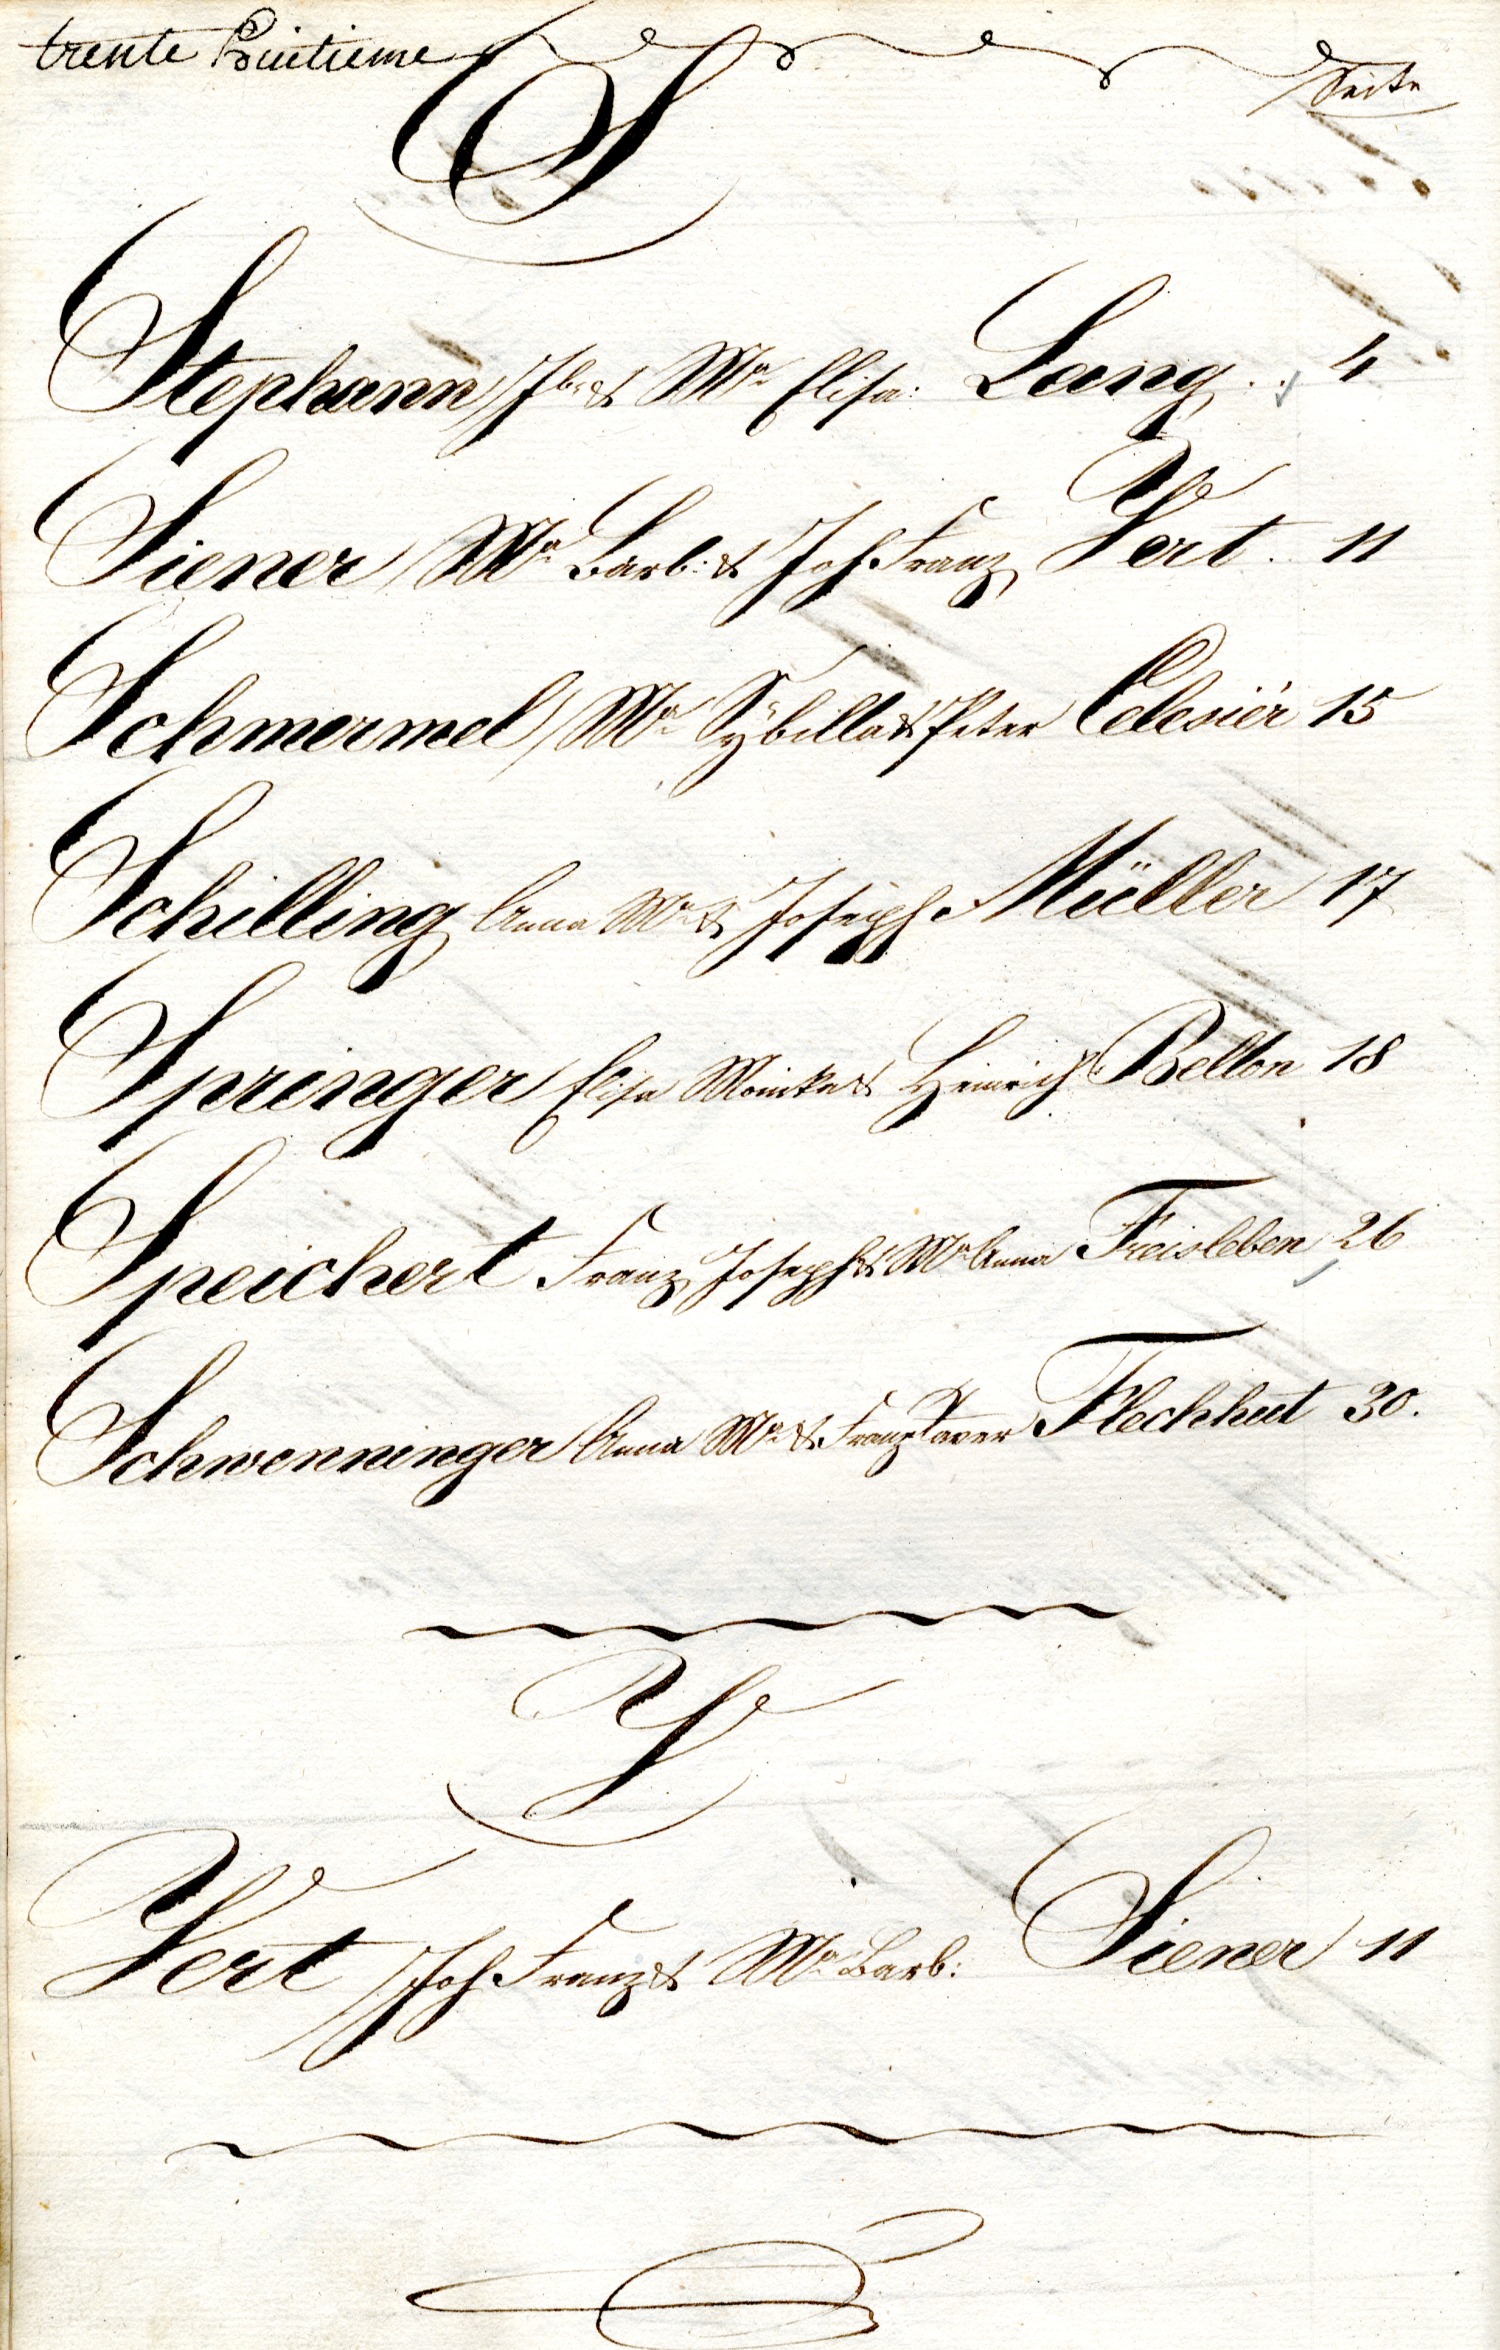 trente huitieme
Seite
S
Stephann Jb. & Ma Elisa: Lang . . 4
Siener Ma Barb: & Joh. Franz Vert. 11
Schmermel Ma Sÿbilla & Peter 15
Schilling Anna Ma & Joseph Müller 17
Springer Elisa Monika & Heinrich Bellon 18
Speichert Franz Joseph & Ma Anna Freisleben 26
Schwenninger Anna Ma & Franz Xaver Flechhut 30.
V
Vert Joh. Franz & Ma Barb: Siener 11